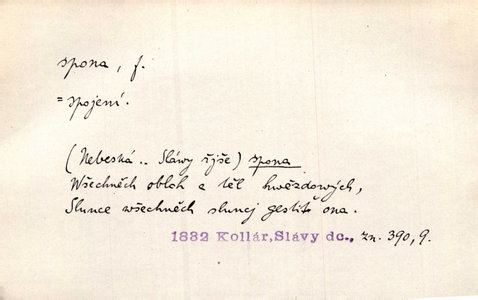 spona, f.
= spojení.
(Nebeská .. Sláwy říše) spona
Wšechněch obloh a těl hwězdowých,
Slunce wšechněch sluncj gestiť ona.
1832 Kollár, Slávy dc., zn. 390, 9.